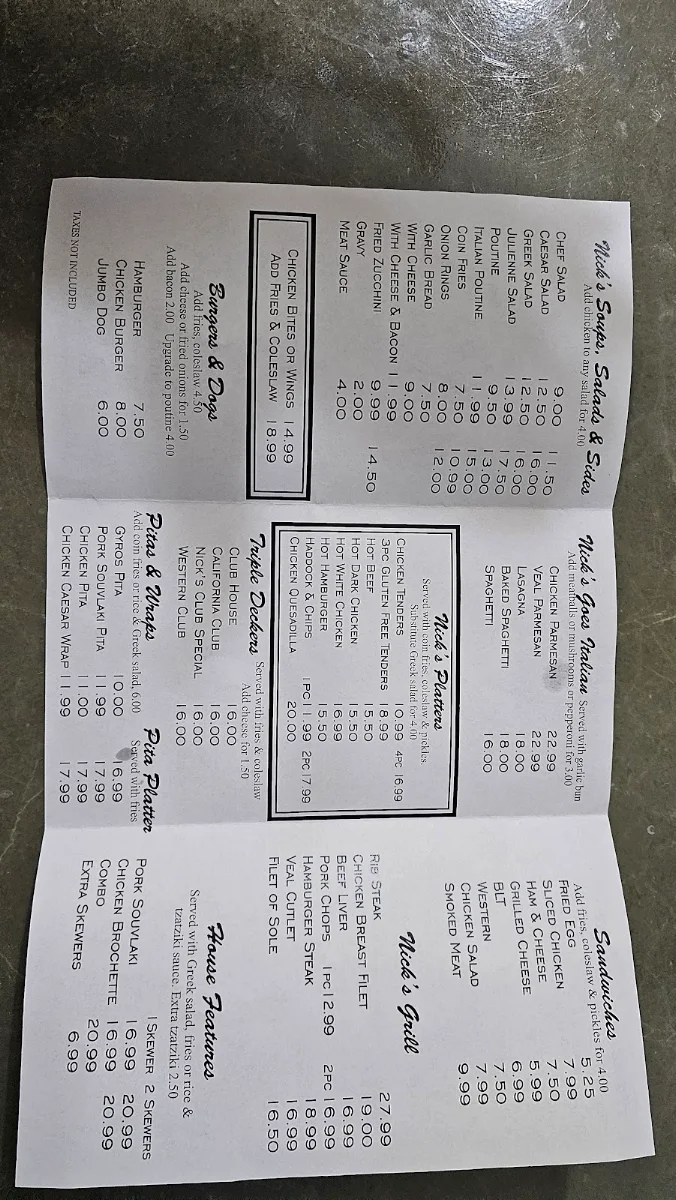 Nick's Soups, Salads & Sides
Add chicken to any salad for 4.00
CHEF SALAD 9.00 11.50
CAESAR SALAD 12.50 16.00
GREEK SALAD 12.50 16.00
JULIENNE SALAD 13.99 17.50
POUTINE 9.50 13.00
ITALIAN POUTINE 11.99 15.00
COIN FRIES 7.50 10.99
ONION RINGS 8.00 12.00
GARLIC BREAD 7.50
WITH CHEESE 9.00
WITH CHEESE & BACON 11.99
FRIED ZUCCHINI 9.99 14.50
GRAVY 2.00
MEAT SAUCE 4.00
CHICKEN BITES OR WINGS 14.99
ADD FRIES & COLESLAW 18.99
Burgers & Dogs
Add fries, coleslaw 4.50
Add cheese or fried onions for 1.50
Add bacon 2.00 Upgrade to poutine 4.00
HAMBURGER 7.50
CHICKEN BURGER 8.00
JUMBO DOG 6.00
TAXES NOT INCLUDED
Nick's Goes Italian Served with garlic bun
Add meatballs or mushrooms or pepperoni for 3.00
CHICKEN PARMESAN 22.99
VEAL PARMESAN 22.99
LASAGNA 18.00
BAKED SPAGHETTI 18.00
SPAGHETTI 16.00
Nick's Platters
Served with coin fries, coleslaw & pickles
Substitute Greek salad for 4.00
CHICKEN TENDERS 10.99 4PC 16.99
3PC GLUTEN FREE TENDERS 18.99
HOT BEEF 15.50
HOT DARK CHICKEN 15.50
HOT WHITE CHICKEN 16.99
HOT HAMBURGER 15.50
HADDOCK & CHIPS 1PC 11.99 2PC 17.99
CHICKEN QUESADILLA 20.00
Triple Deckers Served with fries & coleslaw
Add cheese for 1.50
CLUB HOUSE 16.00
CALIFORNIA CLUB 16.00
NICK'S CLUB SPECIAL 16.00
WESTERN CLUB 16.00
Pitas & Wraps Pita Platter
Add coin fries or rice & Greek salad, 6.00 Served with fries
GYROS PITA 10.00 16.99
PORK SOUVLAKI PITA 11.99 17.99
CHICKEN PITA 11.00 17.99
CHICKEN CAESAR WRAP 11.99 17.99
Sandwiches
Add fries, coleslaw & pickles for 4.00
FRIED EGG 5.25
SLICED CHICKEN 7.99
HAM & CHEESE 7.50
GRILLED CHEESE 5.99
BLT 6.99
WESTERN 7.50
CHICKEN SALAD 7.99
SMOKED MEAT 9.99
Nick's Grill
RIB STEAK 27.99
CHICKEN BREAST FILET 19.00
BEEF LIVER 16.99
PORK CHOPS 1PC 12.99 2PC 16.99
HAMBURGER STEAK 18.99
VEAL CUTLET 16.99
FILET OF SOLE 16.50
House Features
Served with Greek salad, fries or rice &
tzatziki sauce. Extra tzatziki 2.50
1 SKEWER 2 SKEWERS
PORK SOUVLAKI 16.99 20.99
CHICKEN BROCHETTE 16.99 20.99
COMBO 20.99
EXTRA SKEWERS 6.99